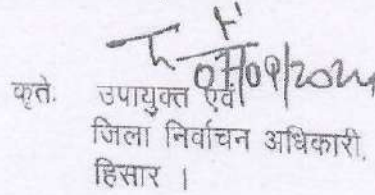 07/09/2024
कृते. उपायुक्त एवं
जिला निर्वाचन अधिकारी,
हिसार ।